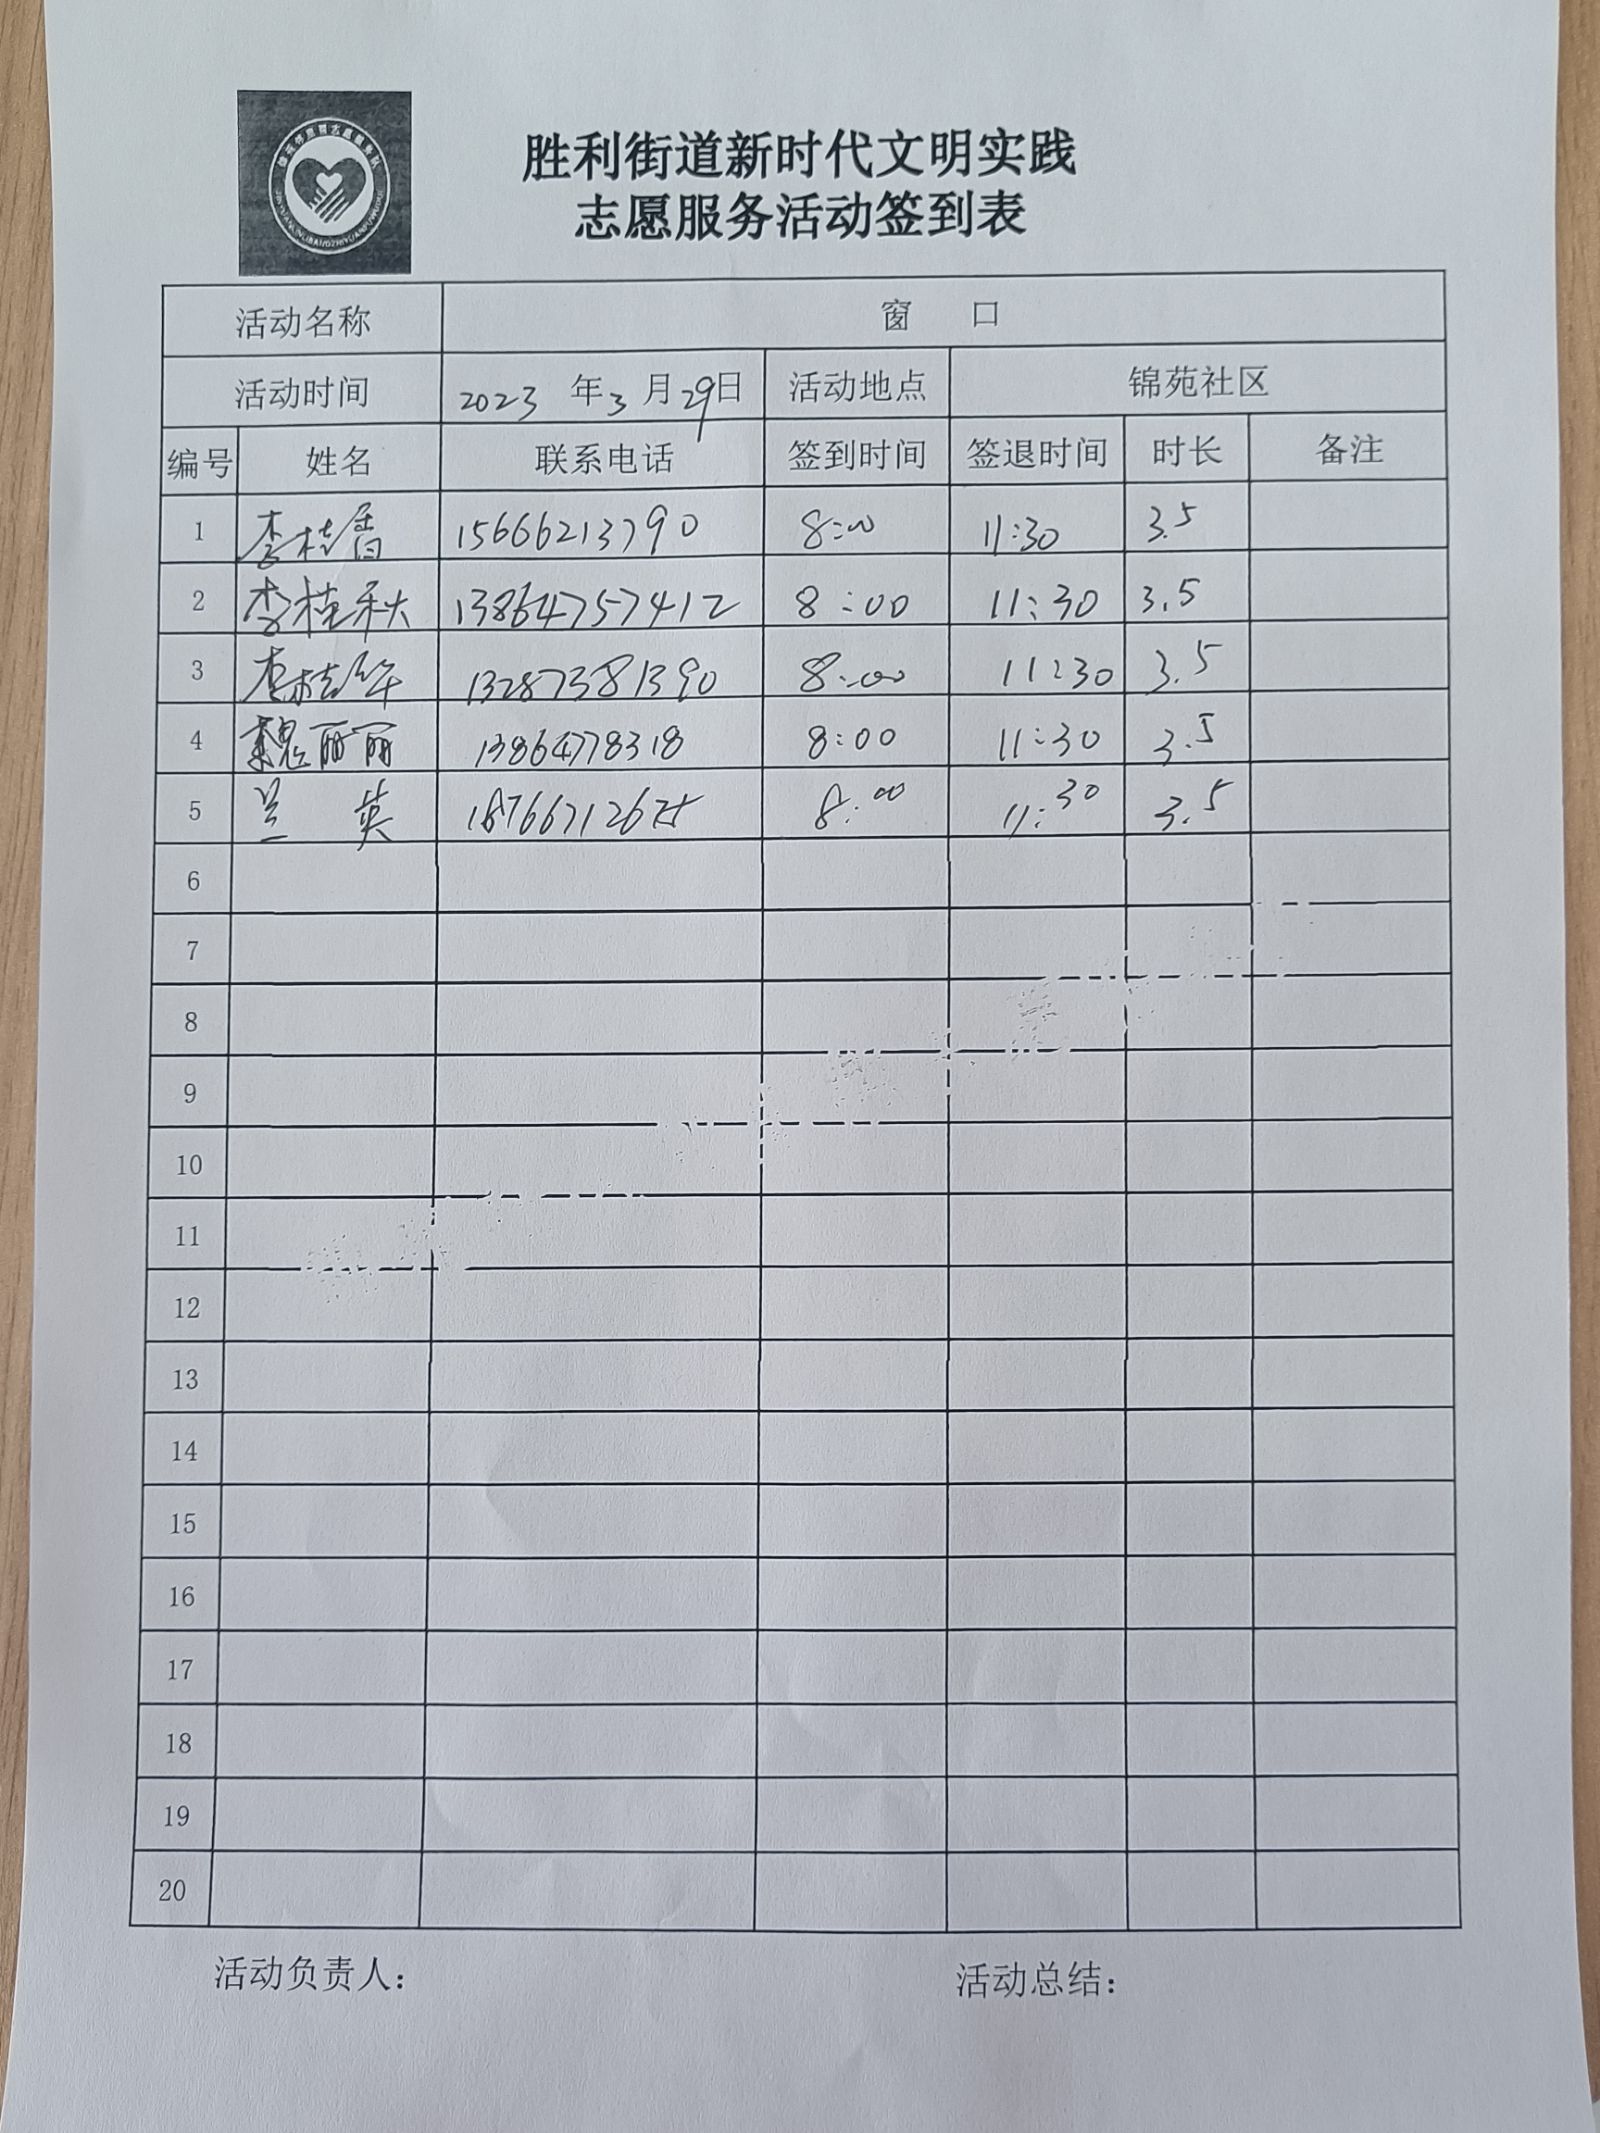 胜利街道新时代文明实践
志愿服务活动签到表
活动名称 窗 口
活动时间 2023 年 3 月 29 日 活动地点 锦苑社区
编号 姓名 联系电话 签到时间 签退时间 时长 备注
1 李桂香 15666213790 8:00 11:30 3.5
2 李桂秋 13864757412 8:00 11:30 3.5
3 李桂华 13287381390 8:00 11:30 3.5
4 魏丽丽 13864778318 8:00 11:30 3.5
5 兰 英 8:00 11:30 3.5
6
7
8
9
10
11
12
13
14
15
16
17
18
19
20
活动负责人： 活动总结：